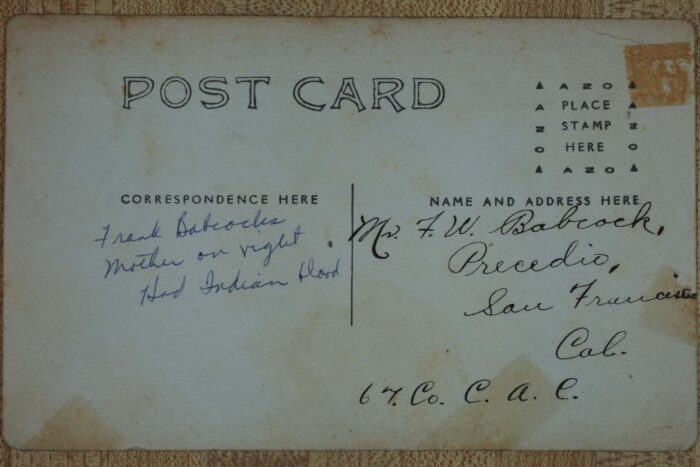 POST CARD
AZO
PLACE
STAMP
HERE
AZO
CORRESPONDENCE HERE
Frank Babcocks
Mother on right
Had Indian blood
NAME AND ADDRESS HERE
Mr. F. W. Babcock,
Precedio,
San Francisco
Cal.
67. Co. C. A. C.